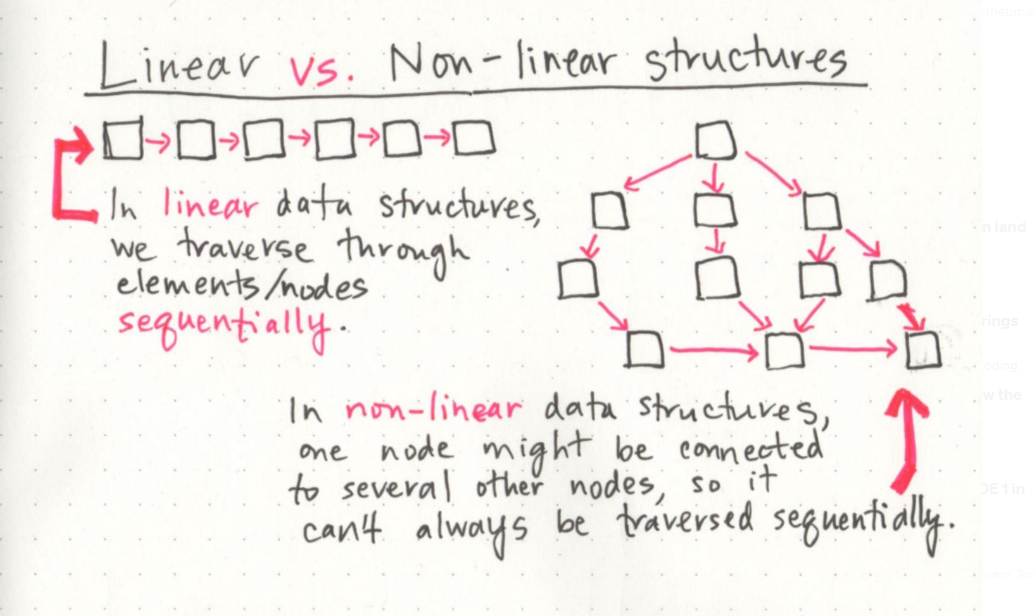 Linear vs. Non-linear structures
In linear data structures,
we traverse through
elements/nodes
sequentially.
In non-linear data structures,
one node might be connected
to several other nodes, so it
can't always be traversed sequentially.
n land
rings
oding
w the
DE 1 in